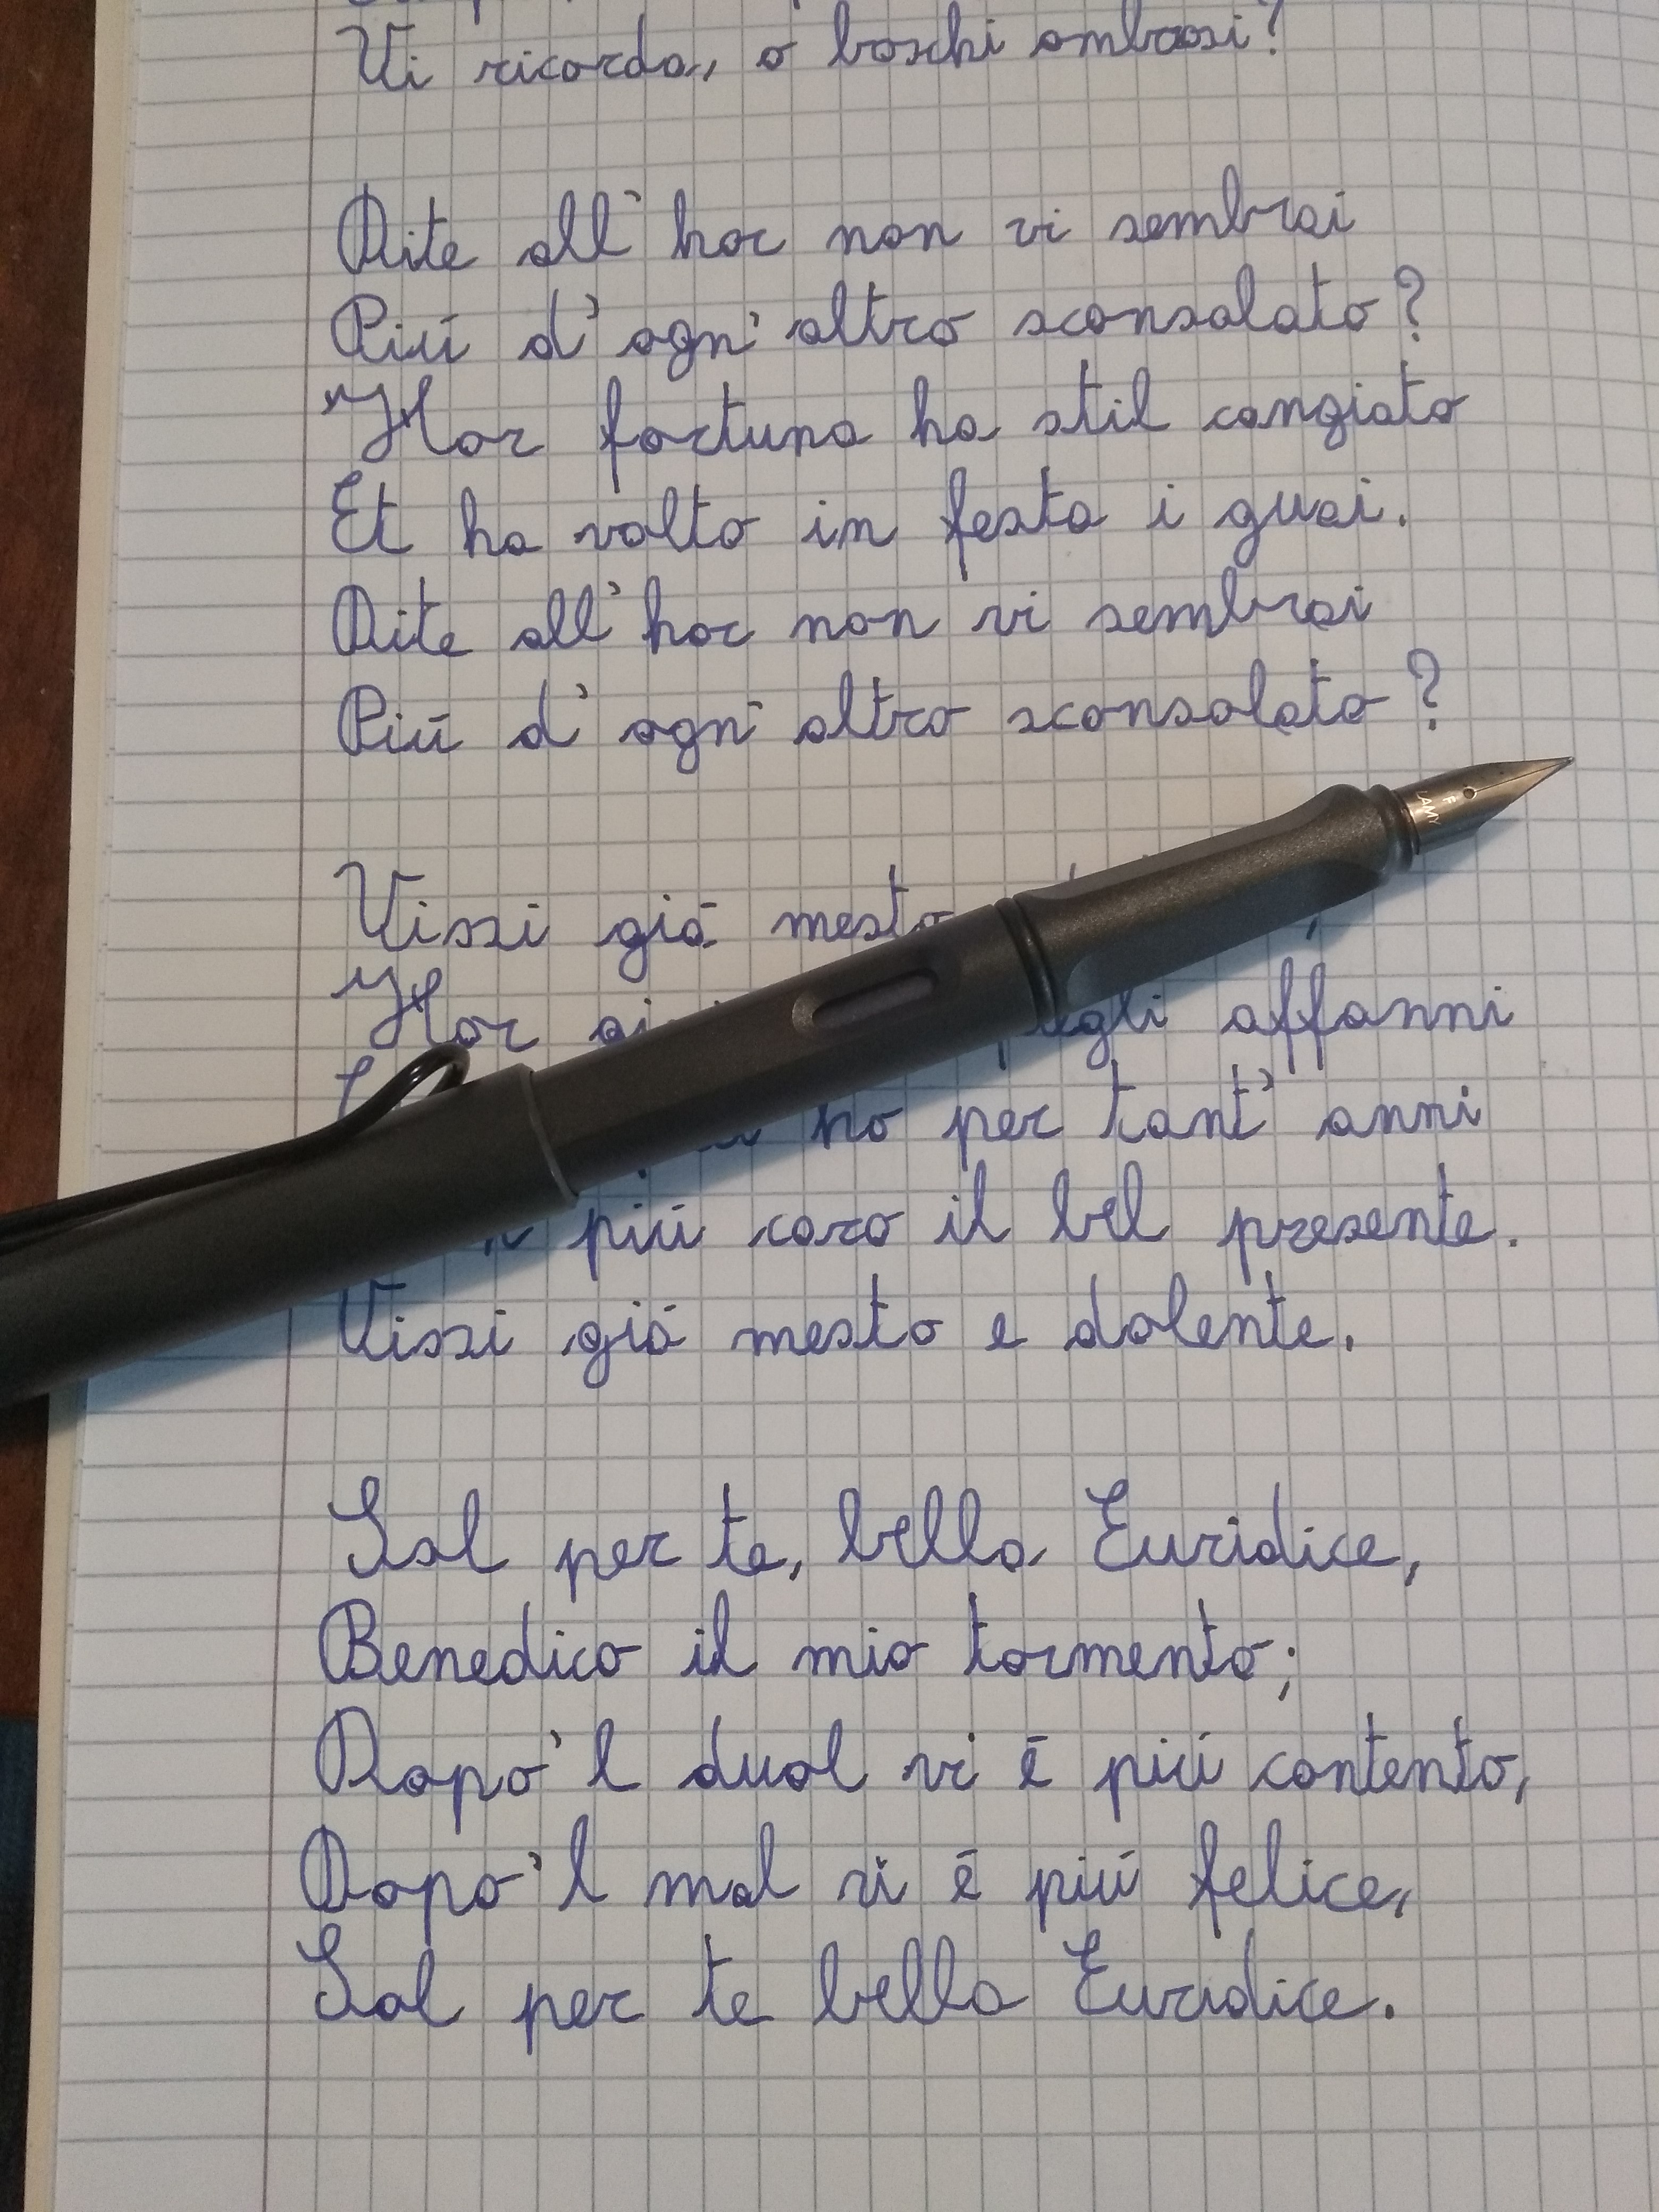 Vi ricorda, o boschi ombrosi?
Dite all' hor non vi sembrai
Più d' ogn' altro sconsolato?
Hor fortuna ha stil cangiato
Et ha volto in festa i guai.
Dite all' hor non vi sembrai
Più d' ogn' altro sconsolato?
LAMY
F
Vissi già mesto
Hor affanni
ho per tant' anni
più caro il bel presente.
Vissi già mesto e dolente.
Sol per te, bella Euridice,
Benedico il mio tormento;
Dopo 'l duol vi è più contento,
Dopo 'l mal vi è più felice,
Sol per te bella Euridice.